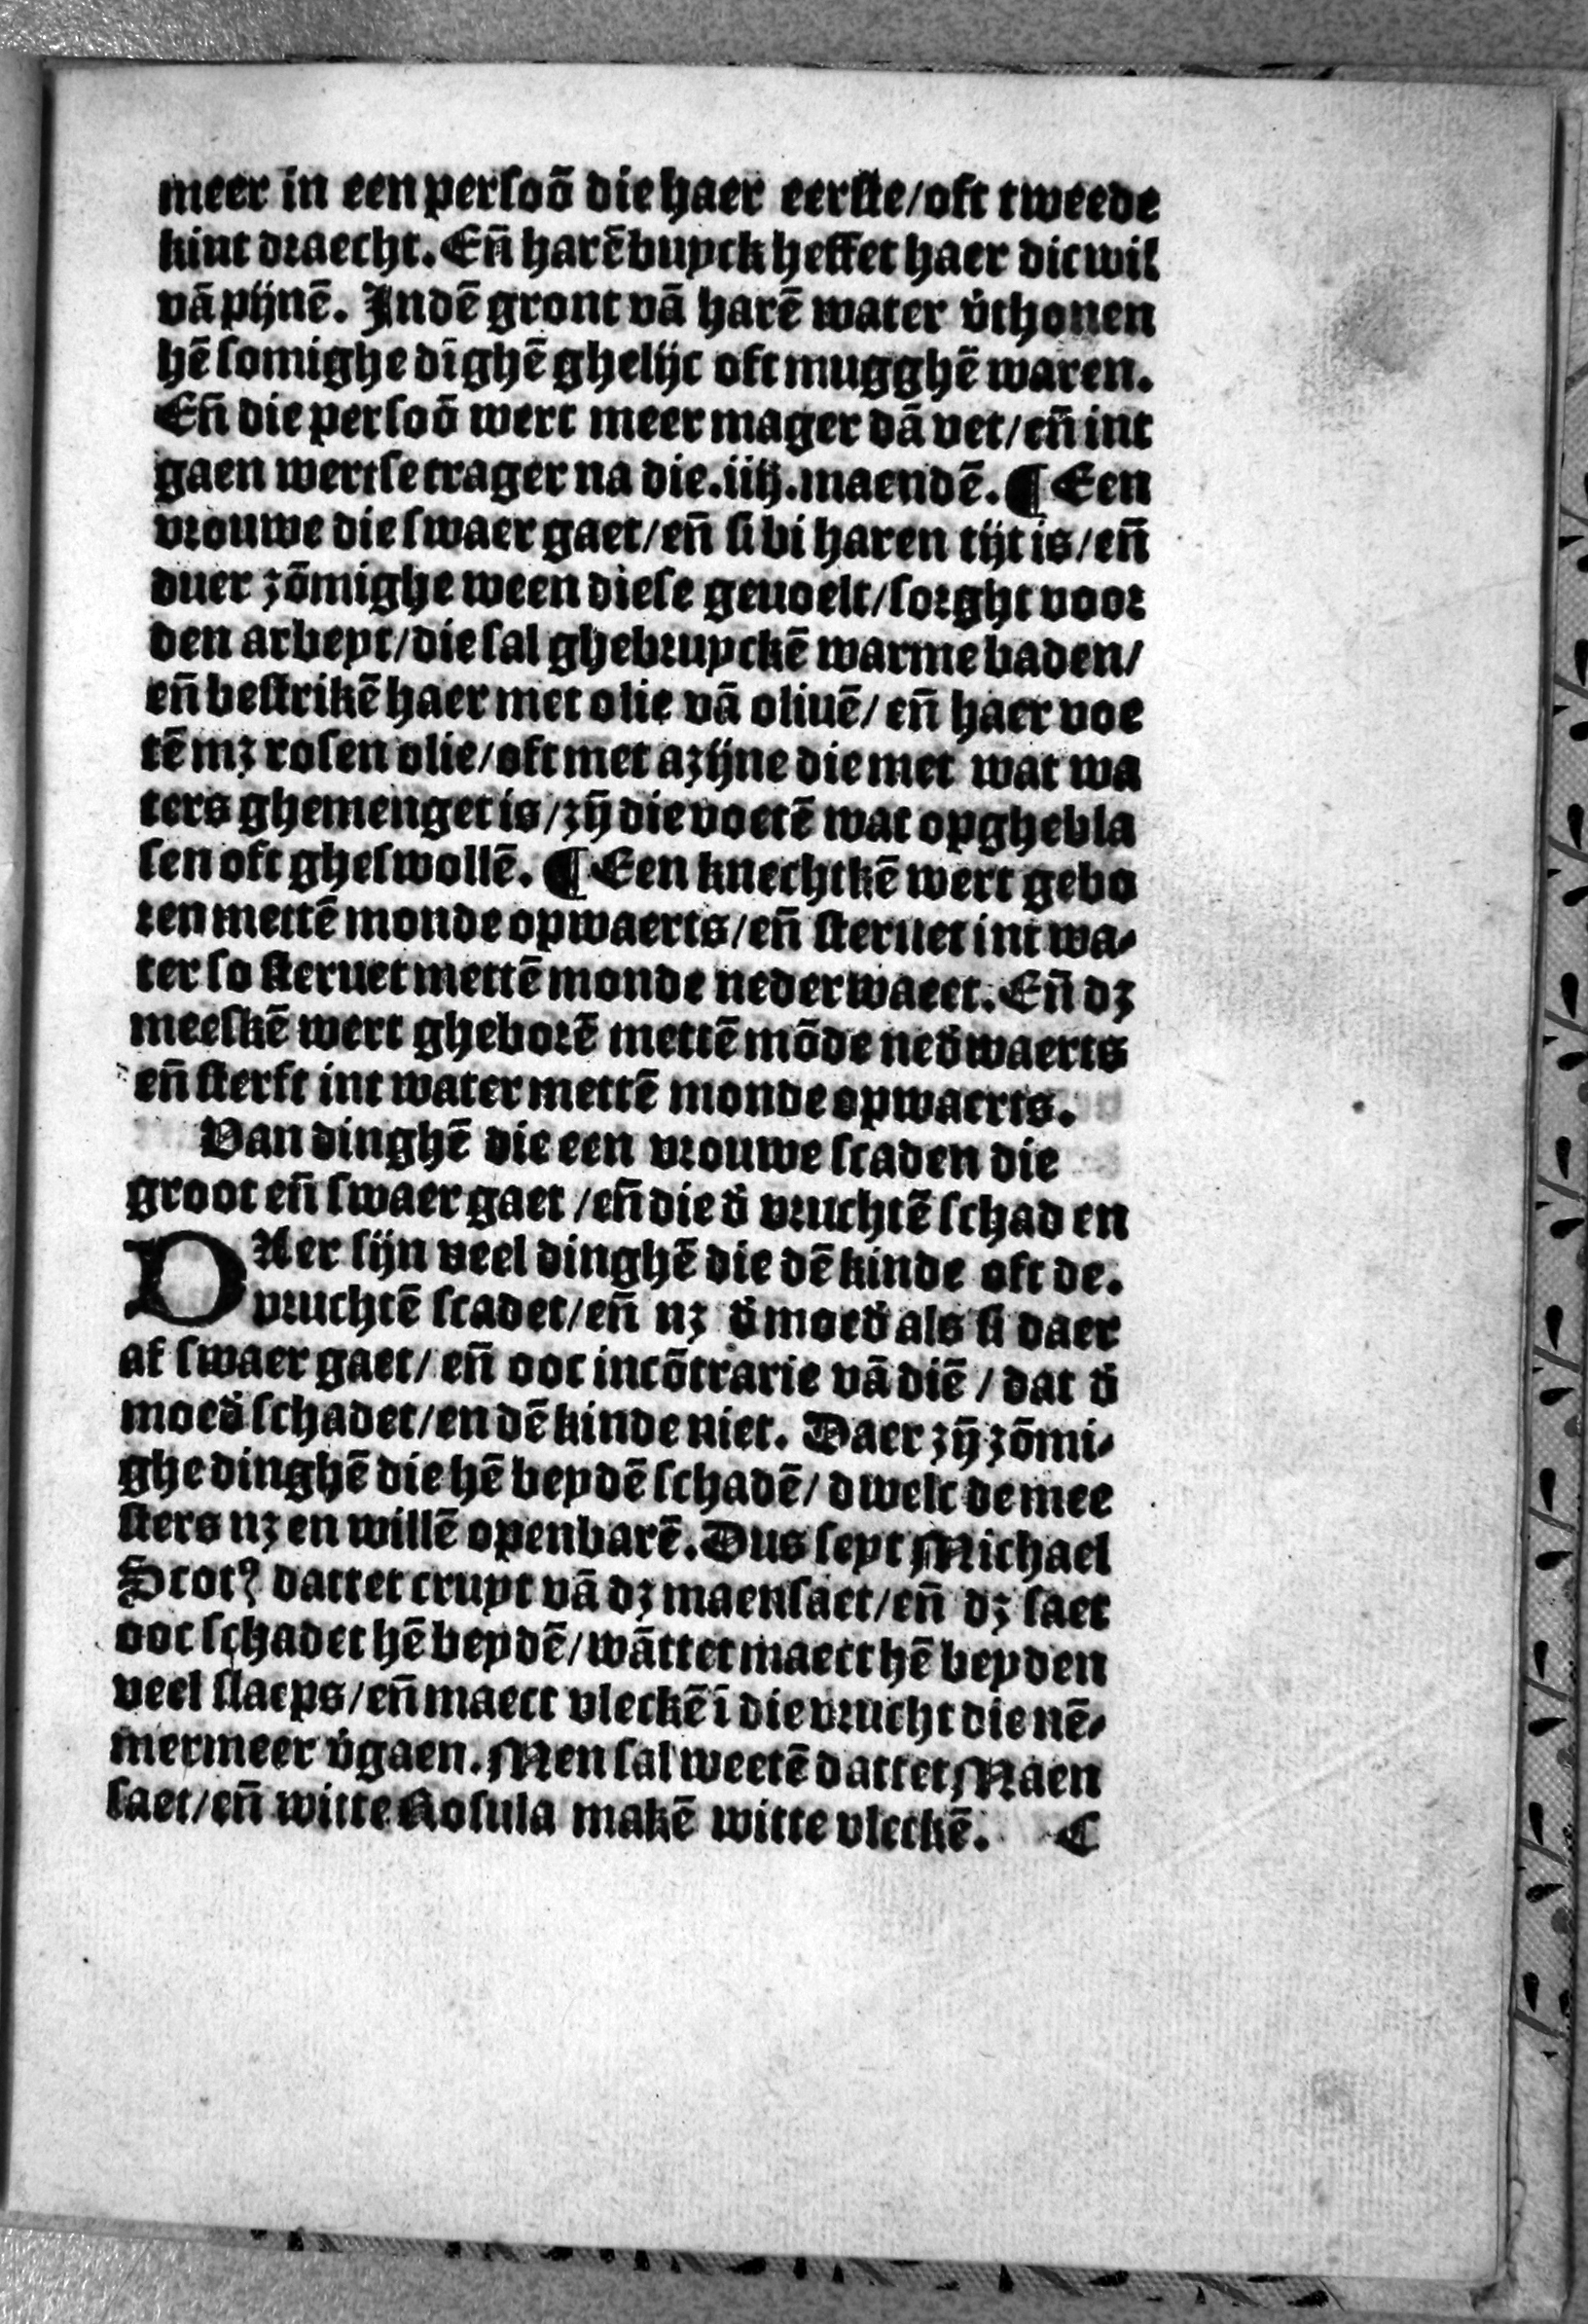 meer in een persoō die haer eerste/oft tweede
kint draecht. Eñ harē buyck heffet haer dicwil
vā pijnē. Indē gront vā harē water v̄thonen
hē somighe dīghē ghelijc oft mugghē waren.
Eñ die persoō wert meer mager dā vet/eñ int
gaen wert se trager na die.iiij.maendē. ¶ Een
vrouwe die swaer gaet/eñ si bi haren tijt is/eñ
duer zōmighe ween diese geuoelt/sorght voor
den arbeyt/die sal ghebruyckē warme baden/
eñ bestrikē haer met olie vā oliuē/eñ haer voe
tē mꝫ rosen olie/oft met azijne die met wat wa
ters ghemenget is/zȳ die voetē wat opghebla
sen oft gheswollē. ¶ Een knechtkē wert gebo
ren mettē monde opwaerts/eñ steruet int wa⸗
ter so steruet mettē monde nederwaect. Eñ dꝫ
meeskē wert gheborē mettē mōde ned̄waerts
eñ sterft int water mettē monde opwaerts.
Van dinghē die een vrouwe scaden die
groot eñ swaer gaet/eñ die d̄ vruchtē schaden
DAer sijn veel dinghē die dē kinde oft de.
vruchtē scadet/eñ nꝫ d̄ moed̄ als si daer
af swaer gaet/eñ ooc incōtrarie vā diē/dat d̄
moed̄ schadet/en dē kinde niet. Daer zȳ zōmi⸗
ghe dinghē die hē beydē schadē/dwelc de mee
sters nꝫ en willē openbarē. Dus seyt Michael
Scotꝰ dattet cruyt vā dꝫ maensaet/eñ dꝫ saet
ooc schadet hē beydē/wāttet maect hē beyden
veel slaeps/eñ maect vleckē ī die vrucht die nē⸗
mermeer v̄gaen. Men sal weetē dattet Maen
saet/eñ witte Rosula makē witte vleckē. ¶